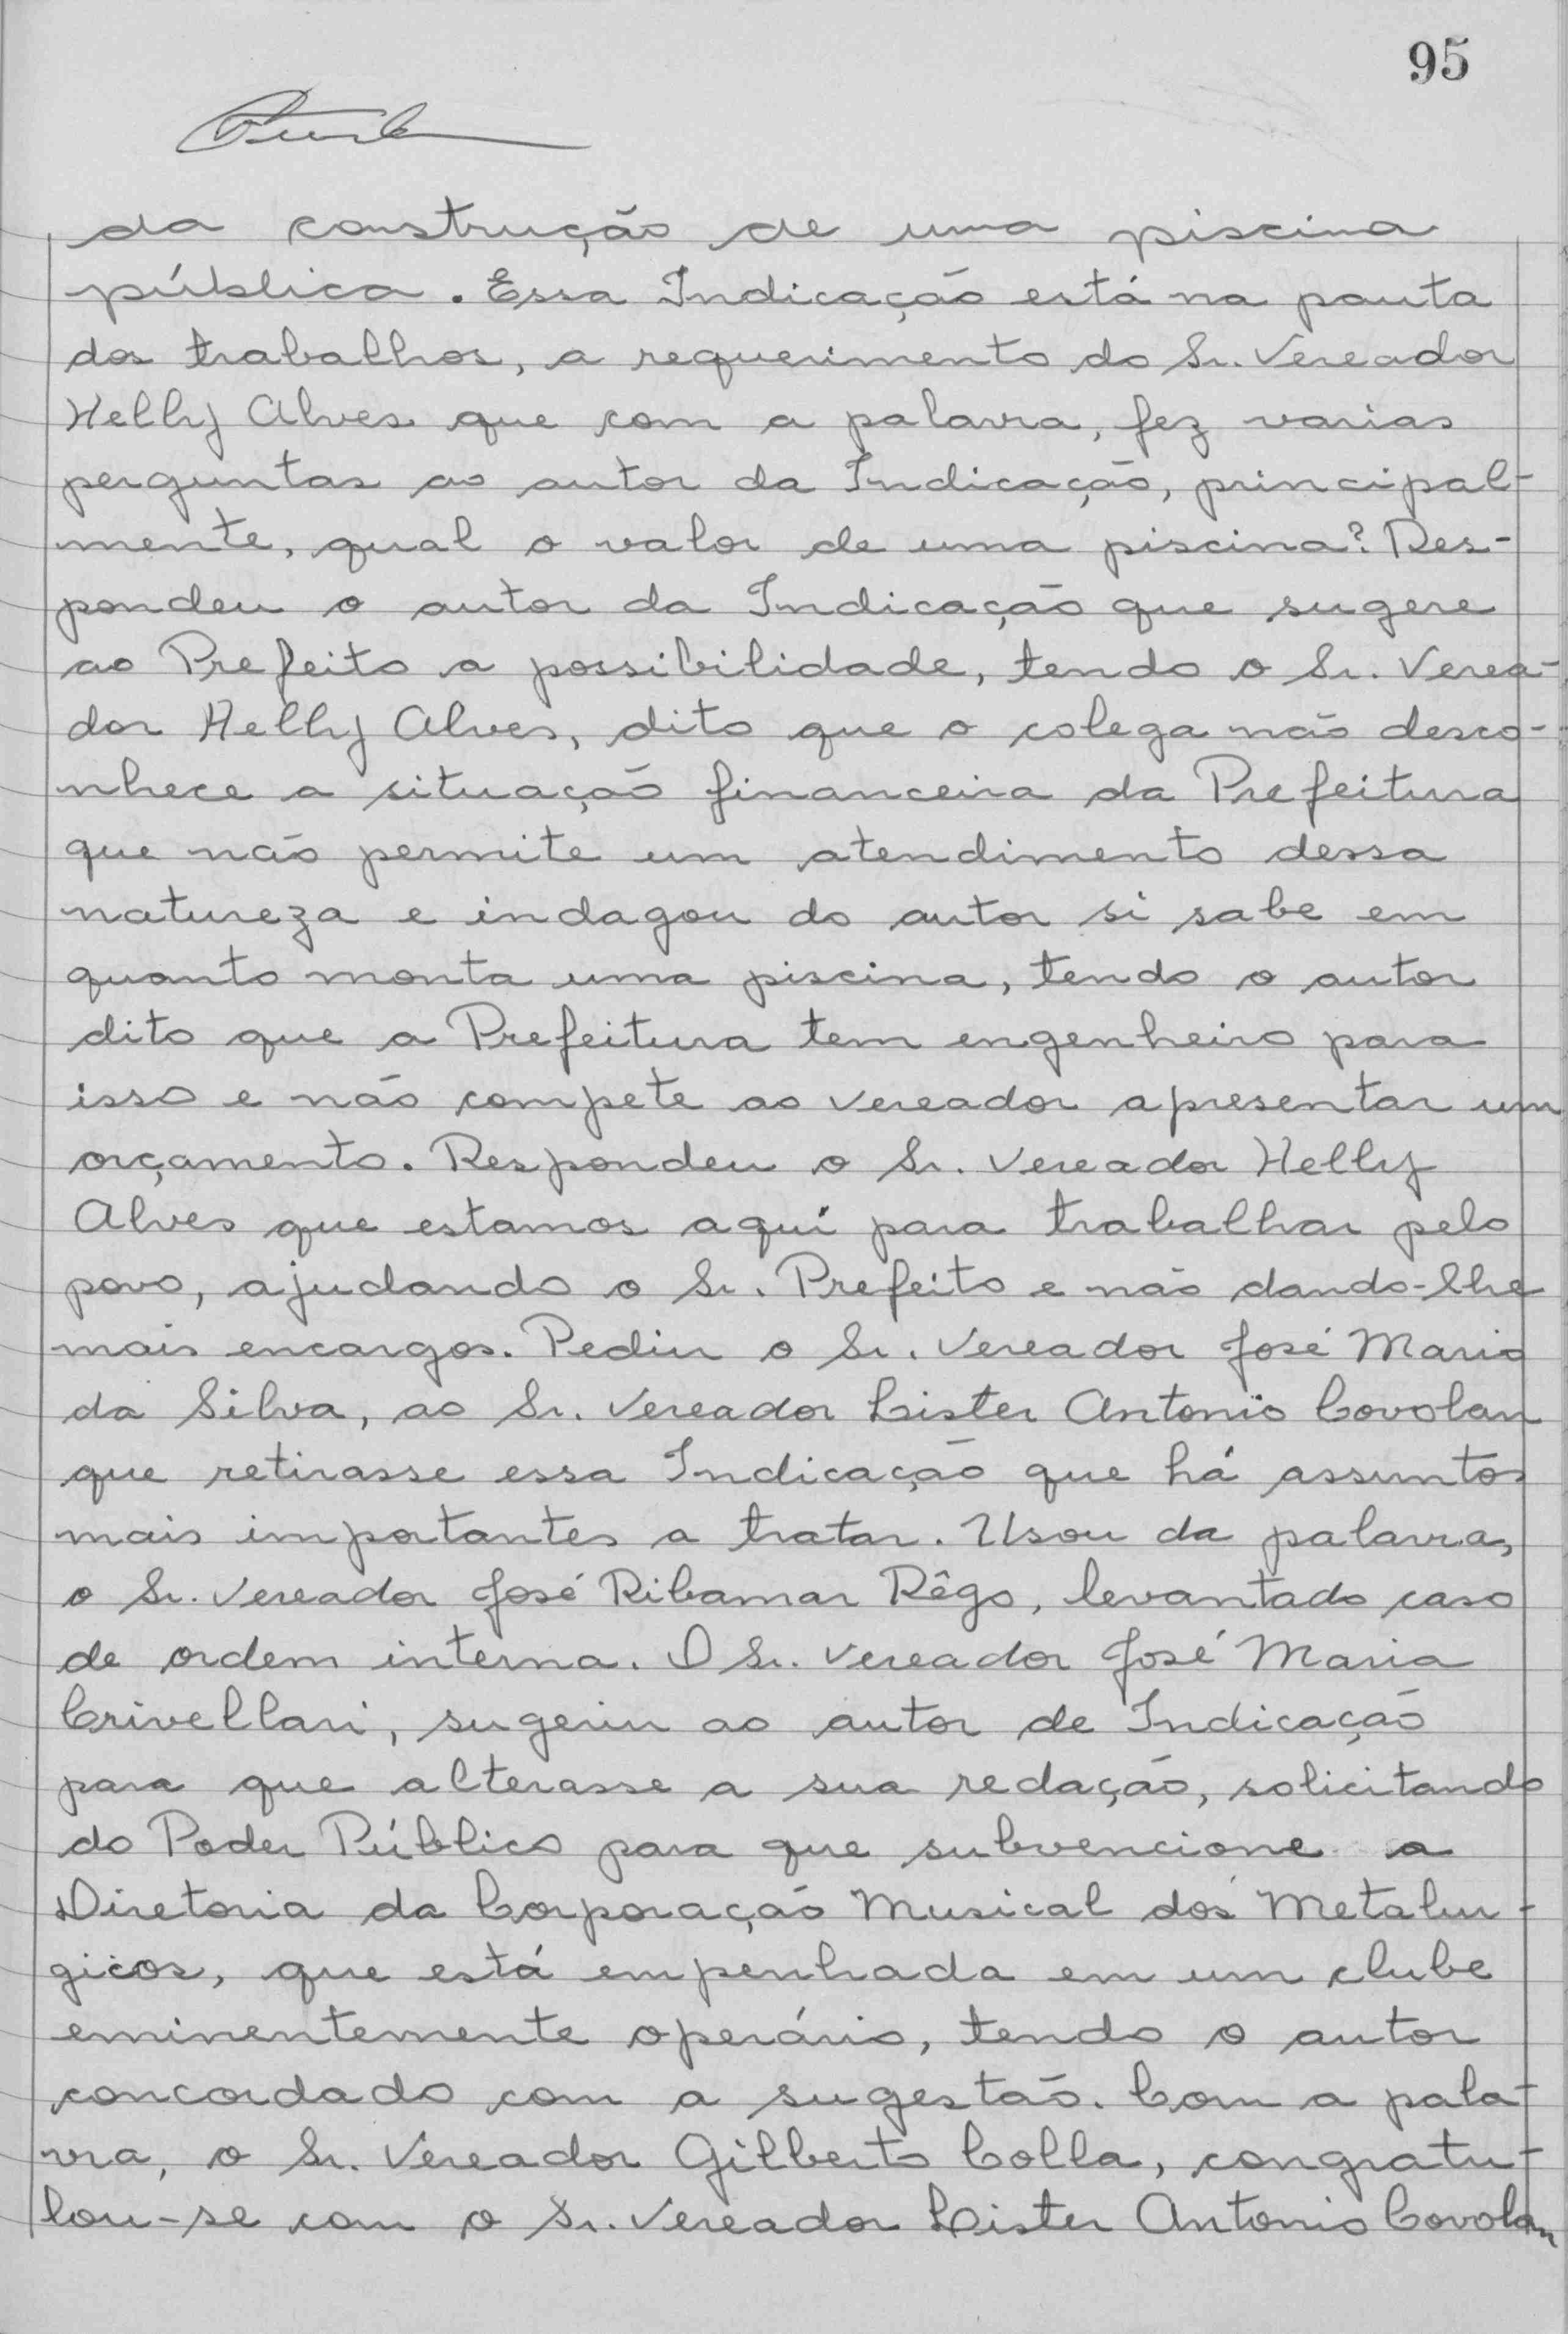 95
da construção de uma piscina
pública. Essa Indicação está na pauta
dos trabalhos, a requerimento do Sr. Vereador
Helly Alves que com a palavra, fez varias
perguntas ao autor da Indicação, principal-
mente, qual o valor de uma piscina? Res-
pondeu o autor da Indicação que sugere
ao Prefeito a possibilidade, tendo o Sr. Verea-
dor Helly Alves, dito que o colega não desco-
nhece a situação financeira da Prefeitura
que não permite um atendimento dessa
natureza e indagou do autor si sabe em
quanto monta uma piscina, tendo o autor
dito que a Prefeitura tem engenheiro para
isso e não compete ao vereador apresentar um
orçamento. Respondeu o Sr. Vereador Helly
Alves que estamos aquí para trabalhar pelo
povo, ajudando o Sr. Prefeito e não dando-lhe
mais encargos. Pediu o Sr. Vereador José Mario
da Silva, ao Sr. Vereador Lister Antonio Covolan
que retirasse essa Indicação que há assuntos
mais importantes a tratar. Usou da palavra,
o Sr. Vereador José Ribamar Rêgo, levantado caso
de ordem interna. O Sr. Vereador José Maria
Crivellari, sugeriu ao autor de Indicação
para que alterasse a sua redação, solicitando
do Poder Público para que subvencione a
Diretoria da Corporação Musical dos Metalur-
gicos, que está empenhada em um clube
eminentemente operário, tendo o autor
concordado com a sugestão. Com a pala-
vra, o Sr. Vereador Gilberto Colla, congratu-
lou-se com o Sr. Vereador Lister Antonio Covolan